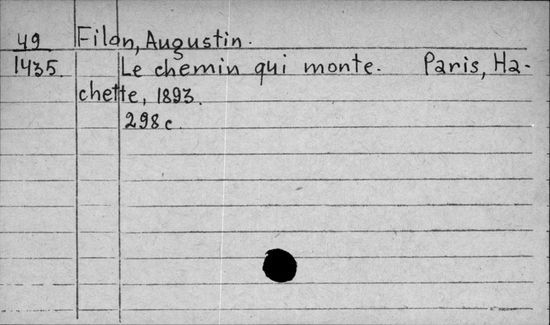 49 Filon, Augustin.
1435. Le chemin qui monte. Paris, Ha-
chette, 1893.
298 c.